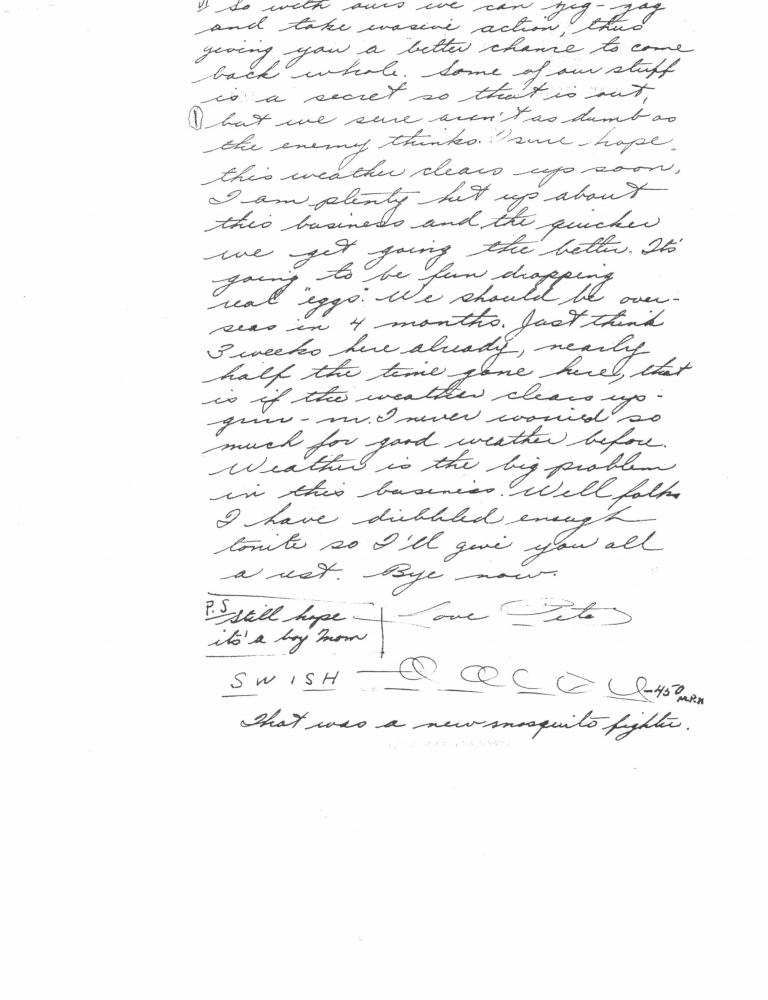 So with ours we can zig-zag
and take evasive action, thus
giving you a better chance to come
back whole. Some of our stuff
is a secret so that is out,
① but we sure aren't as dumb as
the enemy thinks. I sure hope
this weather clears up soon,
I am plenty het up about
this business and the quicker
we get going the better. It's
going to be fun dropping
real "eggs". We should be over-
seas in 4 months. Just think
3 weeks here already, nearly
half the time gone here, that
is if the weather clears up-
grrr-rr. I never worried so
much for good weather before.
Weather is the big problem
in this business. Well folks
I have dribbled enough
tonite so I'll give you all
a rest. Bye now.
Love Pete
P.S Still hope
it's a boy Mom
SWISH -450 M.P.H
That was a new mosquito fighter.